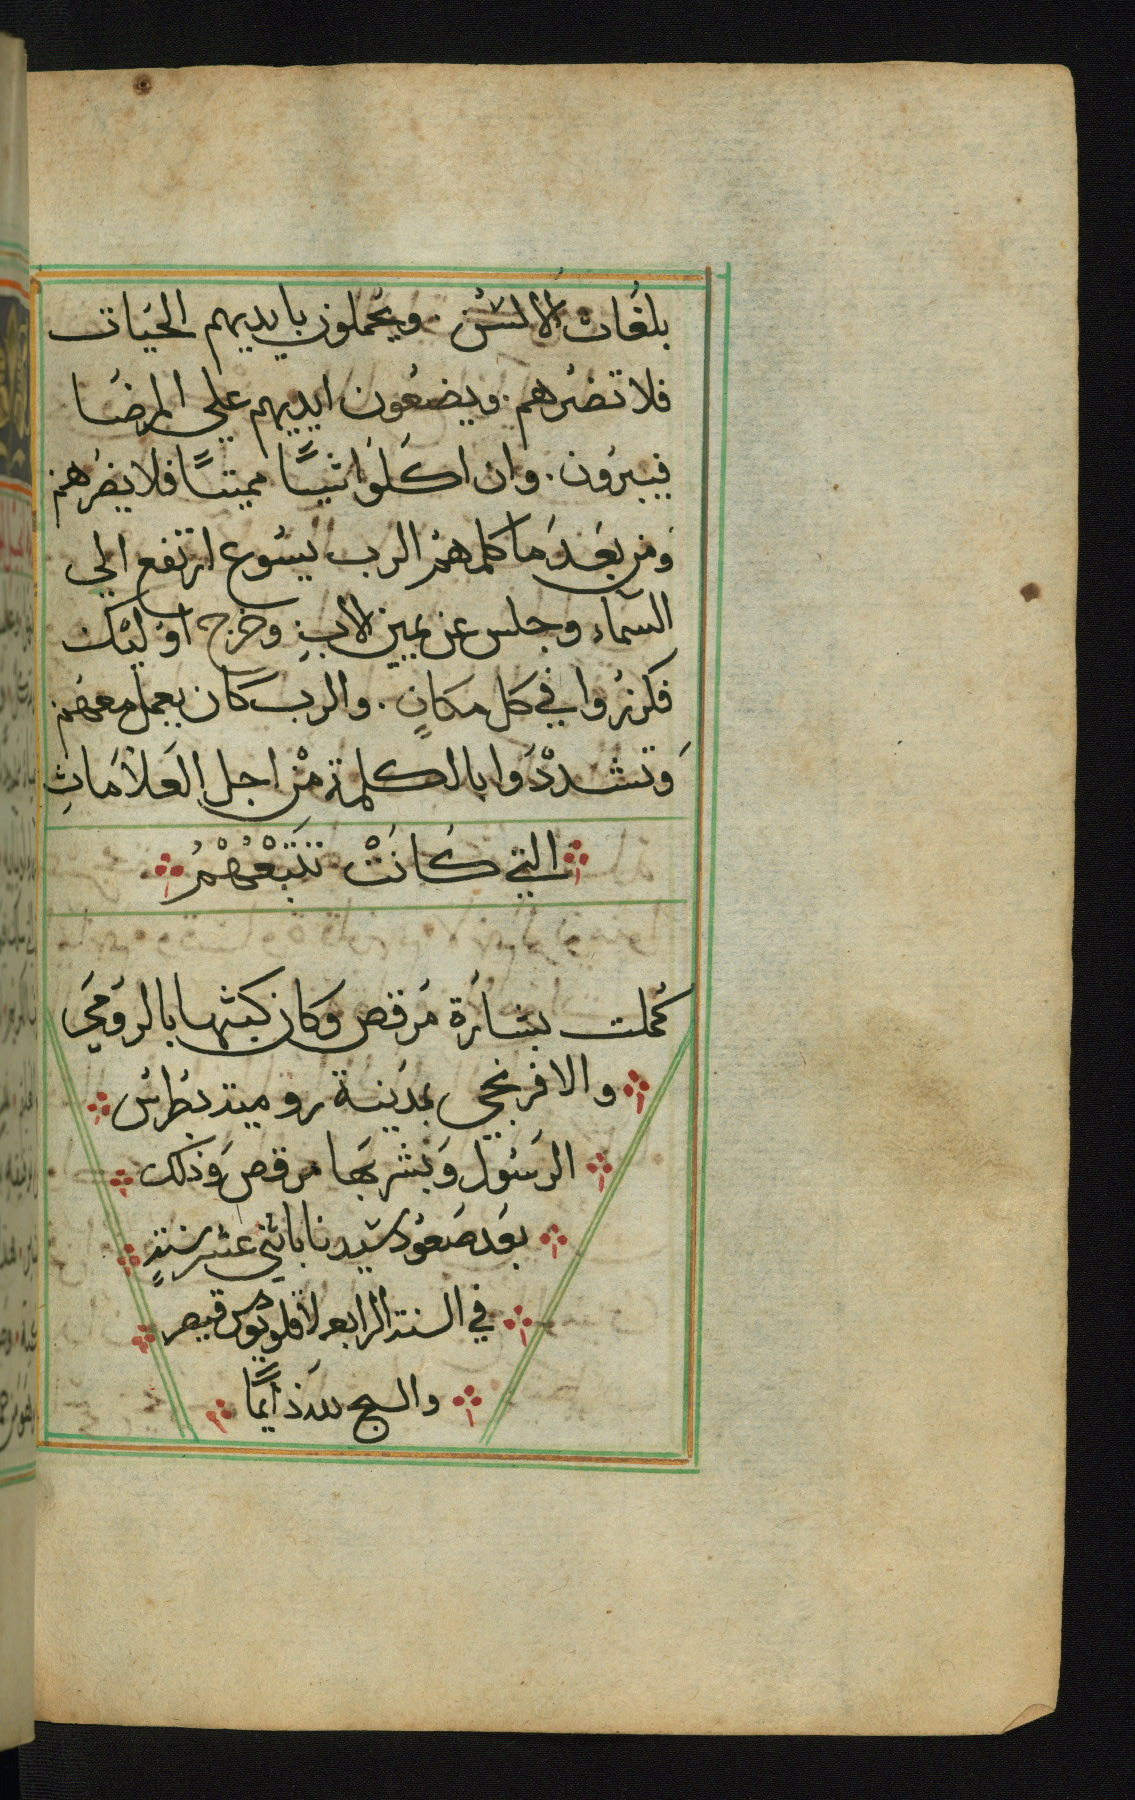 بلغات الالسن. ويحملون بايديهم الحيات
فلا تضرهم. ويضعون ايديهم علي المرضا
فيبرون. وان اكلوا شيًا مميتًا فلا يضرهم
ومن بعد ما كلمهم الرب يسوع ارتفع الي
السماء وجلس عن يمين الاب وخرج اوليك
فكرزوا في كل مكانٍ. والرب كان يعمل معهم
وتشددوا بالكلمة من اجل العلامات
التي كانت تتبعهم
كملت بشارة مرقص وكان كتبها بالرومي
والافرنجي بمدينة رومية بطرس
الرسول وبشر بها مرقص وذلك
بعد صعود سيدنا باثني عشر سنةٍ
في السنة الرابعه لاقلوديوس قيصر
والسبح لله دايمًا